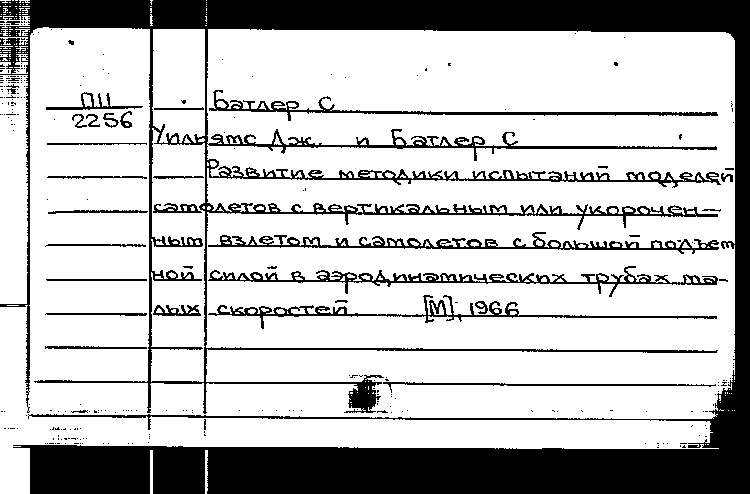 ПII Батлер, С
2256
Уильямс Дж. и Батлер, С
Развитие методики испытаний моделей
самолетов с вертикальным или укорочен-
ным взлетом и самолетов с большой подъем
ной силой в аэродинамических трубах ма-
лых скоростей. [М], 1966